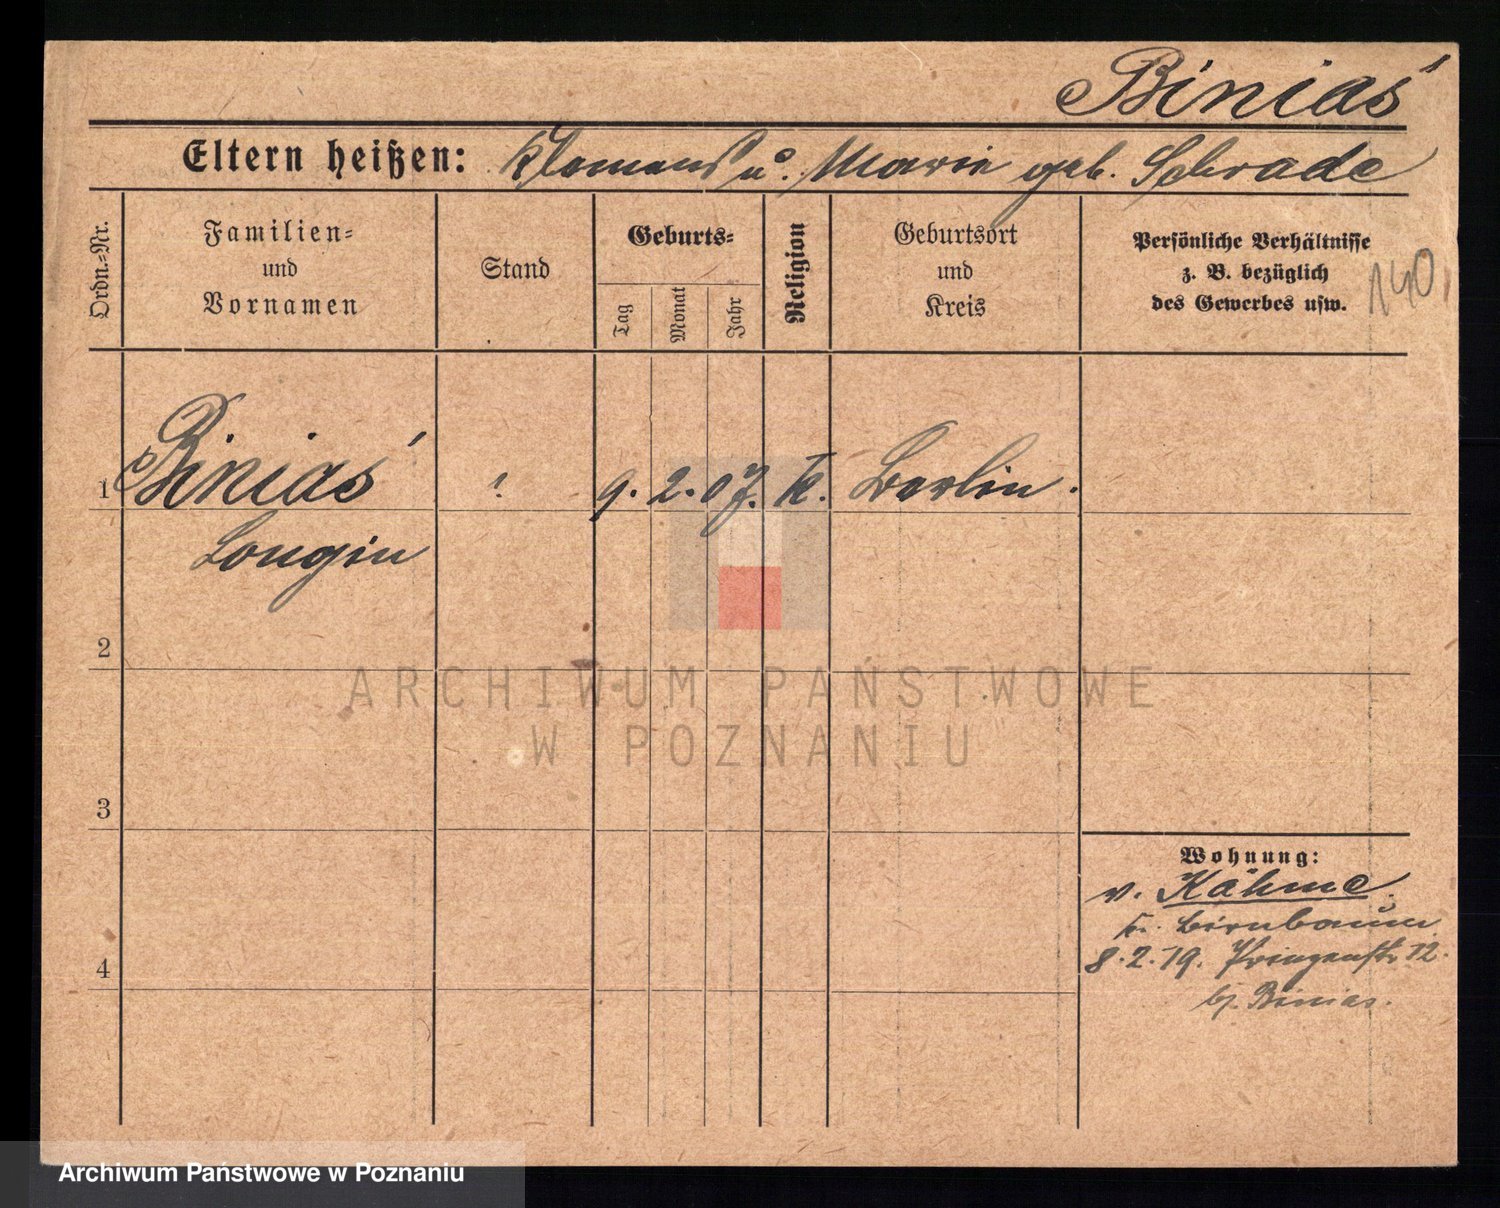 Biniaś
Eltern heißen: Klemens u. Marie geb. Schrade
Ordn.-Nr.
Familien-
und
Vornamen
Stand
Geburts-
Tag
Monat
Jahr
Religion
Geburtsort
und
Kreis
Persönliche Verhältnisse
z. B. bezüglich
des Gewerbes usw.
140
1 Biniaś 9. 2. 07. k. Berlin.
Longin
2
3
4
Wohnung:
v. Kähme
Kr. Birnbaum
8.2.19. Prinzenstr. 12.
bj. Binias.
ARCHIWUM PAŃSTWOWE
W POZNANIU
Archiwum Państwowe w Poznaniu